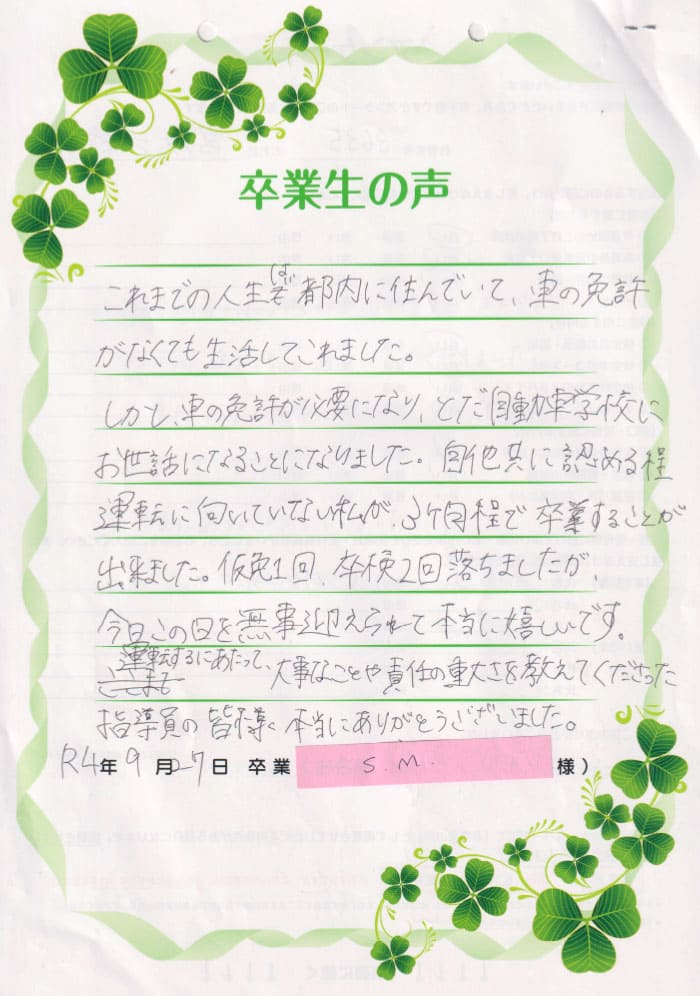 卒業生の声
これまでの人生は都内に住んでいて、車の免許
がなくても生活してこれました。
しかし、車の免許が必要になり、とだ自動車学校に
お世話になることになりました。自他共に認める程
運転に向いていない私が、3ヶ月程で卒業することが
出来ました。仮免1回、卒検2回落ちましたが、
今日この日を無事迎えられて本当に嬉しいです。
運転するにあたって、大事なことや責任の重大さを教えてくださった
指導員の皆様、本当にありがとうございました。
R4年9月27日 卒業 S.M. 様)